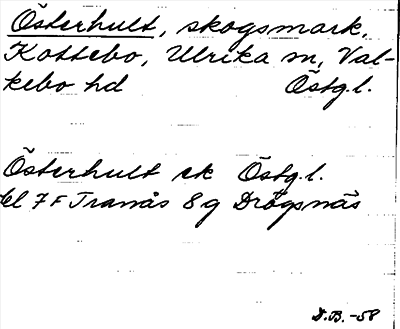 Österhult, skogsmark,
Kottebo, Ulrika sn, Val-
kebo hd Östg.l.
Österhult ek Östg.l.
bl 7 F Tranås 8 g Drögsnäs
D.B. -58